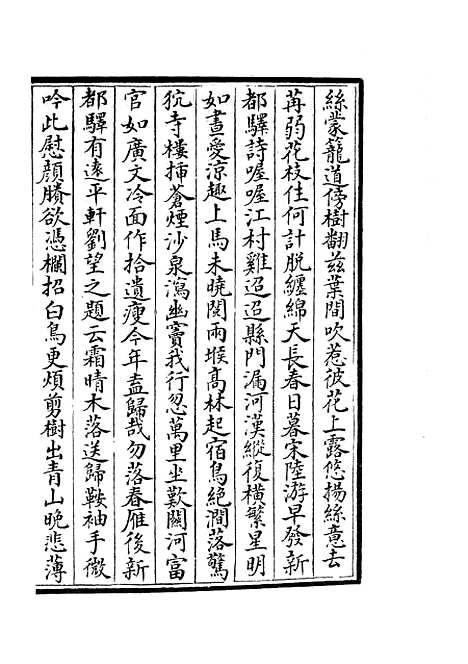 絲蒙籠道傍樹翻茲葉間吹惹彼花上露悠揚絲意去
苒弱花枝住何計脱纏綿天長春日暮宋陸游早發新
都驛詩喔喔江村雞迢迢縣門漏河漢縱復横繁星明
如晝愛涼趣上馬未曉閱兩堠髙林起宿鳥絶澗落驚
狖寺樓插蒼煙沙泉瀉幽竇我行忽萬里坐歎關河富
官如廣文冷面作拾遺瘦今年盍歸哉勿落春雁後新
都驛有遠平軒劉望之題云霜晴木落送歸鞍袖手微
吟此慰顔賸欲憑欄招白鳥更煩剪樹出青山晚悲薄